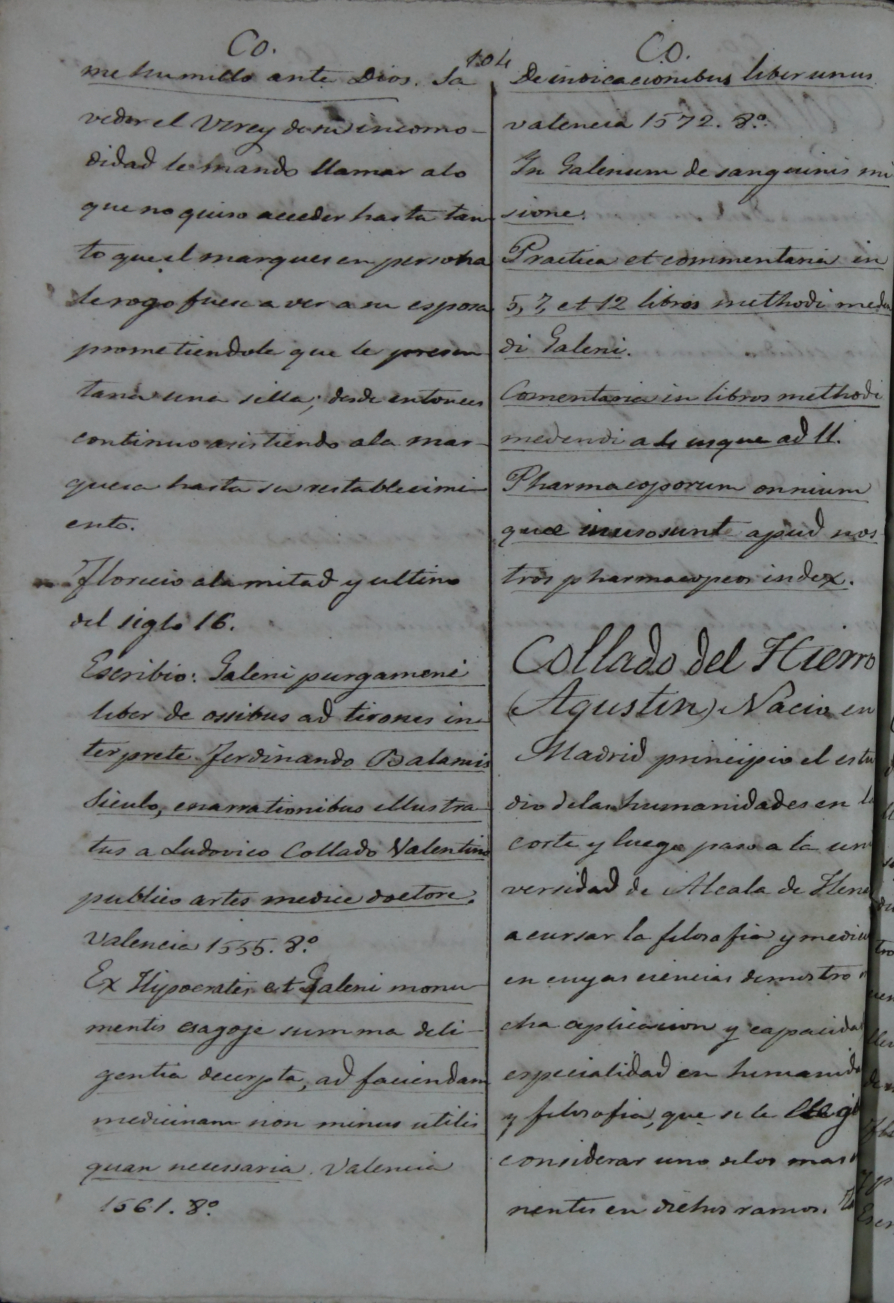 Co.
104
Co.
me humillo ante Dios. Sa
vedor el Virey de su incomo-
didad le mando llamar alo
que no quiso acceder hasta tan
to que el marques en persona
le rogo fuese a ver a su esposa
prometiendole que le presen
taria una silla; desde entonces
continuo asistiendo ala mar-
quesa hasta su restablecimi-
ento.
Florecio ala mitad y ultimo
del siglo 16.
Escribio: Galeni purgameni
liber de ossibus ad tirones in-
terprete Ferdinando Balamis
Siculo, enarrationibus illustra-
tus a Ludovico Collado Valentino
publico artis medice doctore.
Valencia 1555. 8º
Ex Hipocratis et Galeni monu-
mentis esagoje summa deli-
gentia decerpta, ad faciendam
medicinam non minus utilis
quan necessaria. Valencia
1561. 8º
De indicacionibus liber unus
valencia 1572. 8º
In Galenum de sanguinis mi
sione:
Practica et commentaria in
5, 7, et 12 libros methodi mede
di Galeni.
Comentaria in libros methodi
medendi a usque ad 11.
Pharmacoporum onnium
quæ inuso sunt apud nos
tros pharmacopeos index.
Collado del Hierro
(Agustin) Nacio en
Madrid principio el estu
dio delas humanidades en l
corte y luego paso a la uni
versidad de Alcala de Hena
a cursar la filosofia y medici
en cuyas ciencias demostro
cha aplicacion y capacidad
especialidad en humanida
y filosofia, que se le
considerar uno delos mas
nentes en dichos ramos.